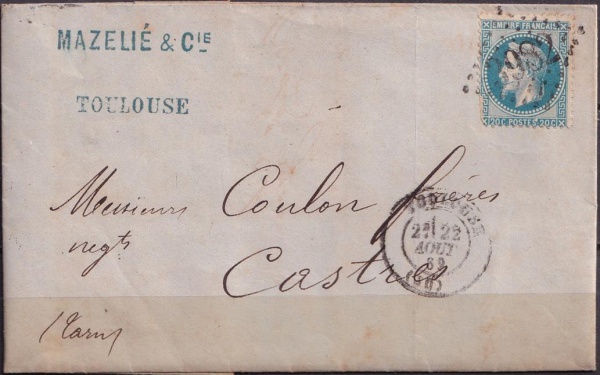 MAZELIÉ & CIE
TOULOUSE
EMPIRE FRANÇAIS
20C POSTES 20C
3982
Messieurs Coulon frères
negts
Castres
(Tarn)
TOULOUSE
2E 22
AOUT
69
(30)